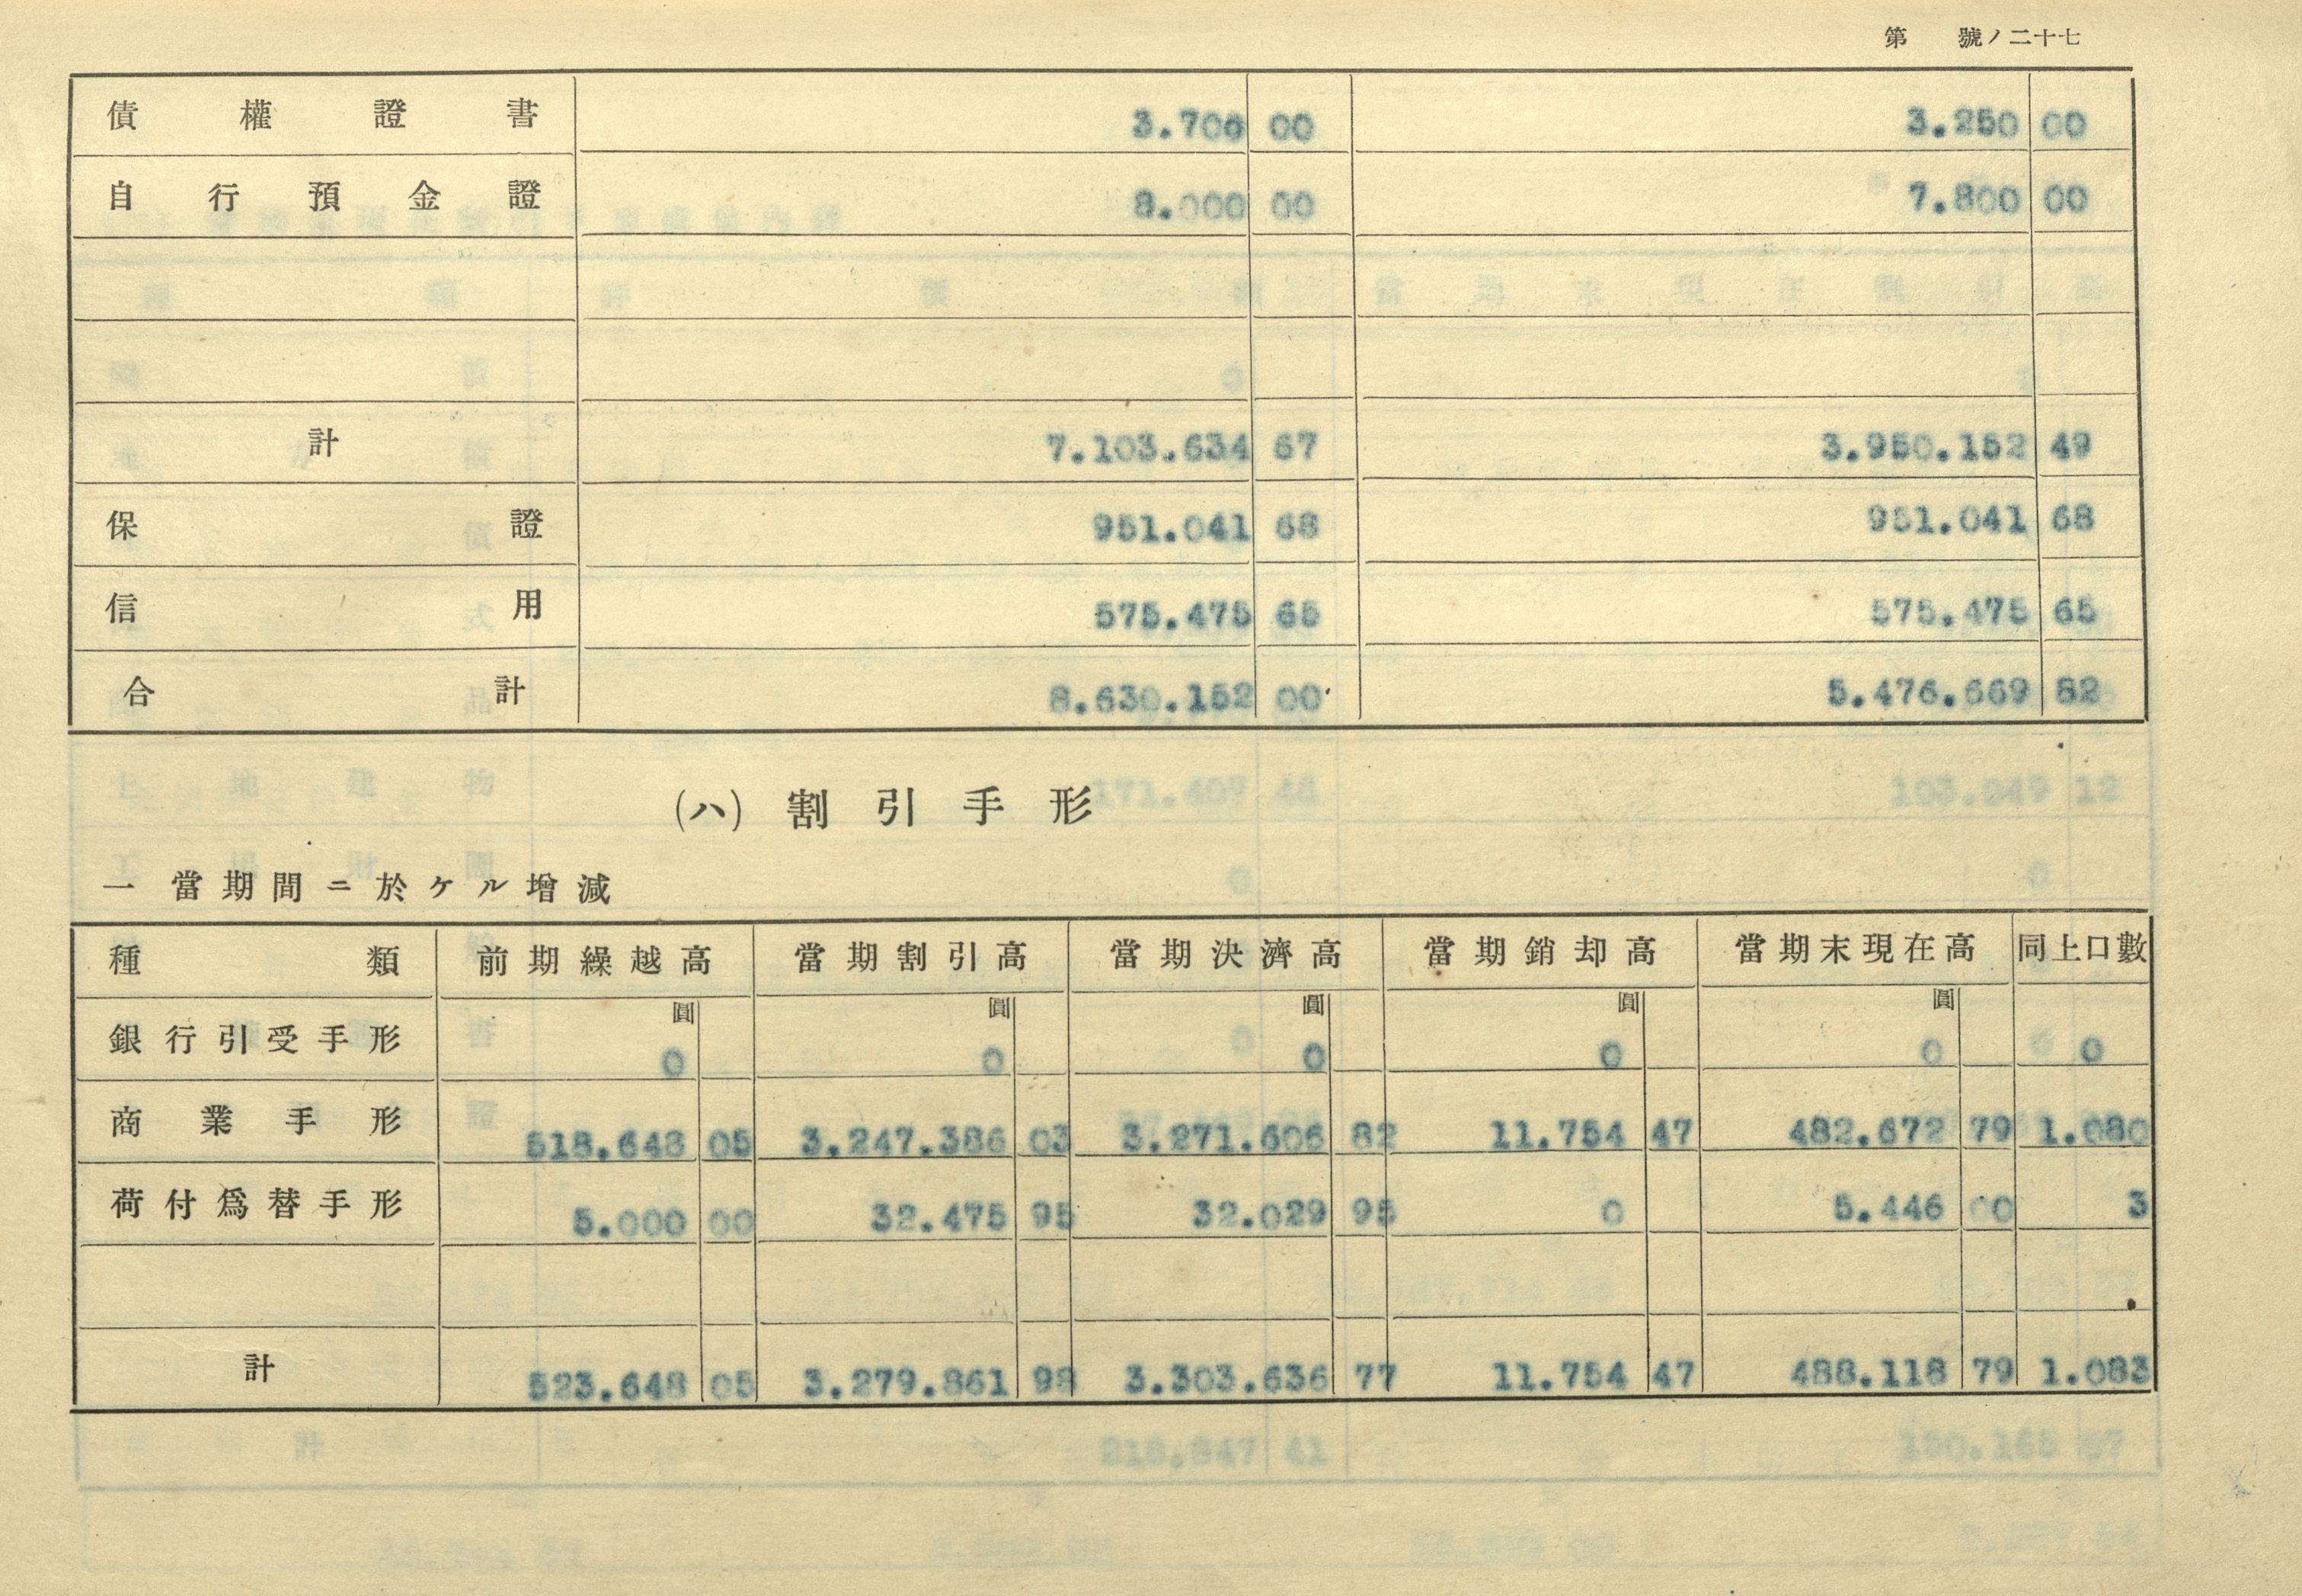 第 號ノ二十七
債權證書 3.700 00 3.250 00
自行預金證 8.000 00 7.800 00
計 7.103.634 67 3.950.152 49
保證 951.041 68 951.041 68
信用 575.475 65 575.475 65
合計 8.630.152 00 5.476.669 82
(ハ) 割引手形
一 當期間ニ於ケル增減
種類 前期繰越高 當期割引高 當期決濟高 當期銷却高 當期末現在高 同上口數
圓 圓 圓 圓 圓
銀行引受手形 0 0 0 0 0 0
商業手形 518.648 05 3.247.386 03 3.271.606 82 11.754 47 482.672 79 1.080
荷付爲替手形 5.000 00 32.475 95 32.029 95 0 5.446 00 3
計 523.648 05 3.279.861 98 3.303.636 77 11.754 47 488.118 79 1.083